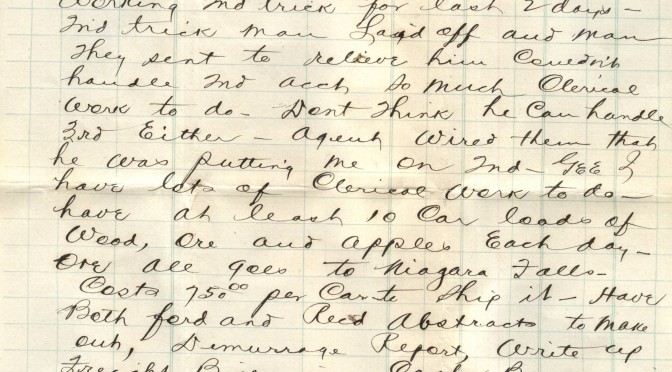 Working 2nd trick for last 2 days -
2nd trick man Laid off and man
They sent to relieve him Couldnt
handle 2nd acct So much Clerical
Work to do - Dont Think he Can handle
3rd Either - Agent Wired them that
he was putting me on 2nd - GEE I
have lots of Clerical Work to do -
have at least 10 Car loads of
Wood, Ore and apples Each day -
Ore all goes to Niagara Falls -
Costs 750⁰⁰ per Car to Ship it - Have
Both ford and Recd Abstracts to make
out, Demurrage Report, Write up
Freight